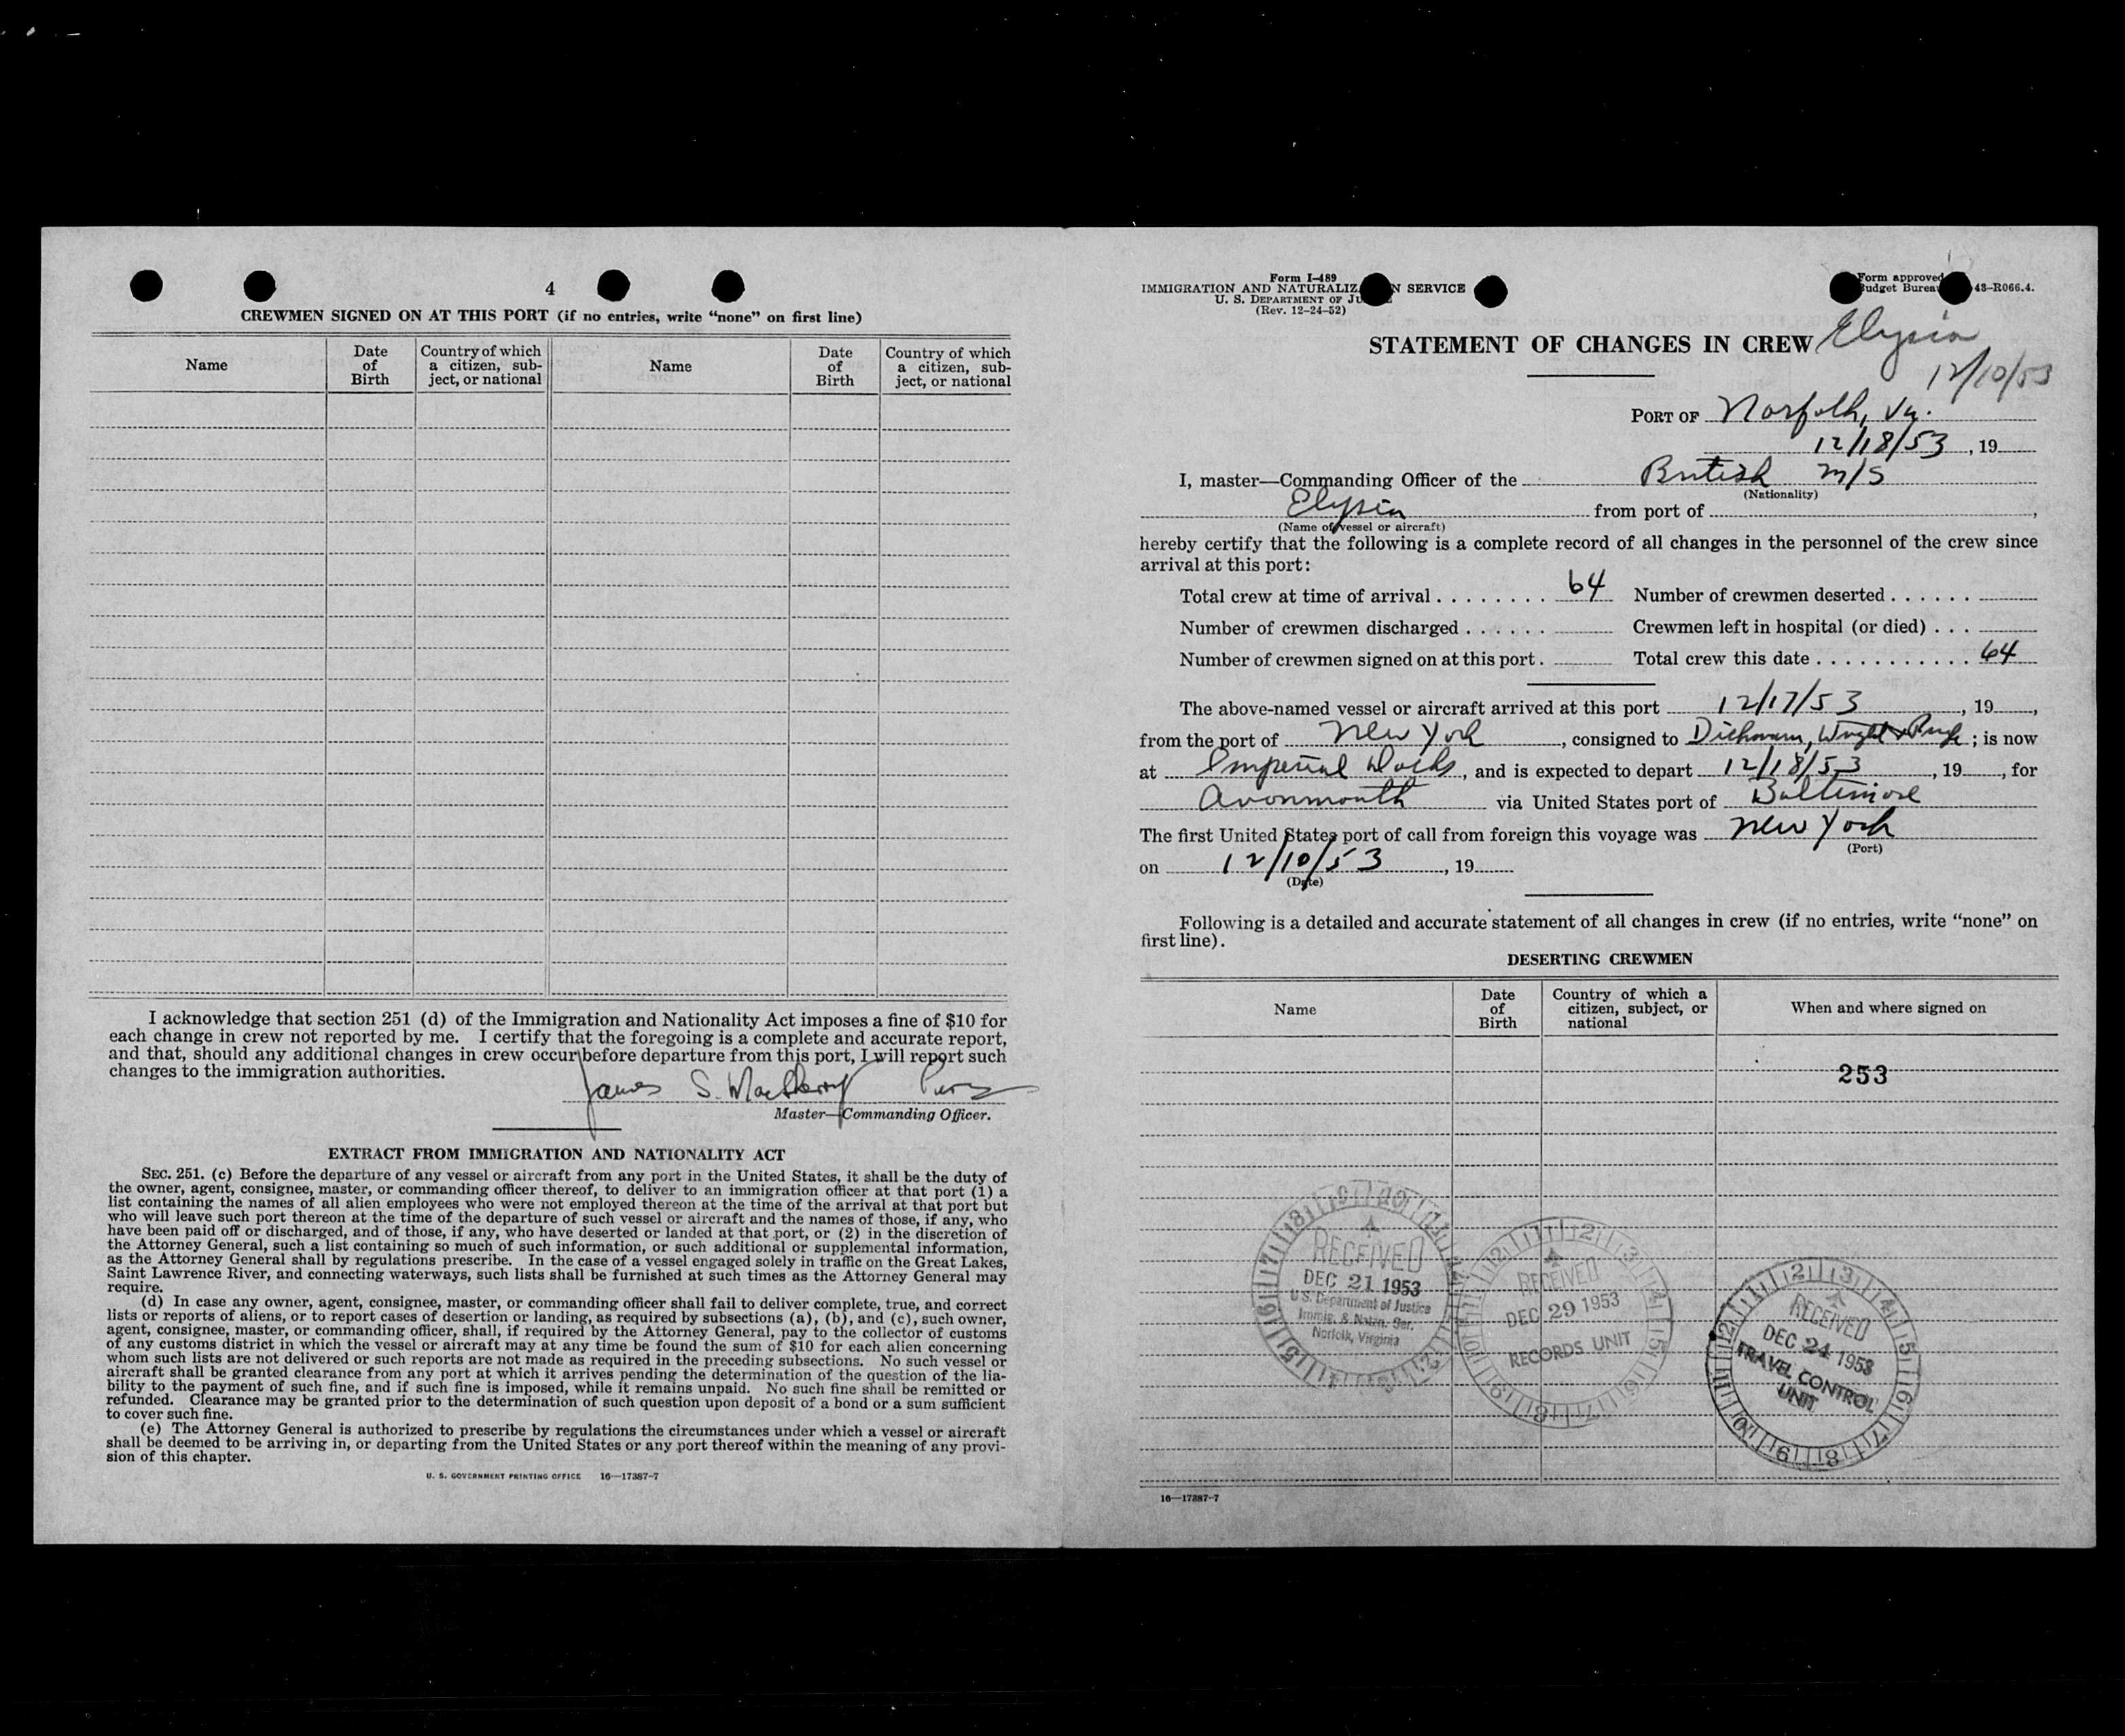 4
CREWMEN SIGNED ON AT THIS PORT (if no entries, write “none” on first line)
Name
Date of Birth
Country of which a citizen, sub-ject, or national
Name
Date of Birth
Country of which a citizen, sub-ject, or national
I acknowledge that section 251 (d) of the Immigration and Nationality Act imposes a fine of $10 for
each change in crew not reported by me. I certify that the foregoing is a complete and accurate report,
and that, should any additional changes in crew occur before departure from this port, I will report such
changes to the immigration authorities.
James S.
Master—Commanding Officer.
EXTRACT FROM IMMIGRATION AND NATIONALITY ACT
SEC. 251. (c) Before the departure of any vessel or aircraft from any port in the United States, it shall be the duty of
the owner, agent, consignee, master, or commanding officer thereof, to deliver to an immigration officer at that port (1) a
list containing the names of all alien employees who were not employed thereon at the time of the arrival at that port but
who will leave such port thereon at the time of the departure of such vessel or aircraft and the names of those, if any, who
have been paid off or discharged, and of those, if any, who have deserted or landed at that port, or (2) in the discretion of
the Attorney General, such a list containing so much of such information, or such additional or supplemental information,
as the Attorney General shall by regulations prescribe. In the case of a vessel engaged solely in traffic on the Great Lakes,
Saint Lawrence River, and connecting waterways, such lists shall be furnished at such times as the Attorney General may
require.
(d) In case any owner, agent, consignee, master, or commanding officer shall fail to deliver complete, true, and correct
lists or reports of aliens, or to report cases of desertion or landing, as required by subsections (a), (b), and (c), such owner,
agent, consignee, master, or commanding officer, shall, if required by the Attorney General, pay to the collector of customs
of any customs district in which the vessel or aircraft may at any time be found the sum of $10 for each alien concerning
whom such lists are not delivered or such reports are not made as required in the preceding subsections. No such vessel or
aircraft shall be granted clearance from any port at which it arrives pending the determination of the question of the lia-
bility to the payment of such fine, and if such fine is imposed, while it remains unpaid. No such fine shall be remitted or
refunded. Clearance may be granted prior to the determination of such question upon deposit of a bond or a sum sufficient
to cover such fine.
(e) The Attorney General is authorized to prescribe by regulations the circumstances under which a vessel or aircraft
shall be deemed to be arriving in, or departing from the United States or any port thereof within the meaning of any provi-
sion of this chapter.
U. S. GOVERNMENT PRINTING OFFICE 16—17387-7
Form I-489
IMMIGRATION AND NATURALIZ N SERVICE
U. S. DEPARTMENT OF JU
(Rev. 12-24-52)
Form approved
Budget Bureau 43-R066.4.
STATEMENT OF CHANGES IN CREW Elysia
12/10/53
PORT OF Norfolk, Va.
12/18/53, 19
I, master—Commanding Officer of the British M/S
(Nationality)
Elysia from port of ,
(Name of vessel or aircraft)
hereby certify that the following is a complete record of all changes in the personnel of the crew since
arrival at this port:
Total crew at time of arrival . . . . . . . . 64 Number of crewmen deserted . . . . . .
Number of crewmen discharged . . . . . . Crewmen left in hospital (or died) . . .
Number of crewmen signed on at this port . Total crew this date . . . . . . . . . . . 64
The above-named vessel or aircraft arrived at this port 12/17/53, 19 ,
from the port of New York, consigned to Dichmann, Wright & Pugh; is now
at Imperial Docks, and is expected to depart 12/18/53, 19 , for
Avonmouth via United States port of Baltimore
The first United States port of call from foreign this voyage was New York
(Port)
on 12/10/53, 19
(Date)
Following is a detailed and accurate statement of all changes in crew (if no entries, write “none” on
first line).
DESERTING CREWMEN
Name
Date of Birth
Country of which a citizen, subject, or national
When and where signed on
253
RECEIVED
DEC 21 1953
U.S. Department of Justice
Immig. & Natzn. Ser.
Norfolk, Virginia
RECEIVED
DEC 29 1953
RECORDS UNIT
RECEIVED
DEC 24 1953
TRAVEL CONTROL
UNIT
16—17387-7